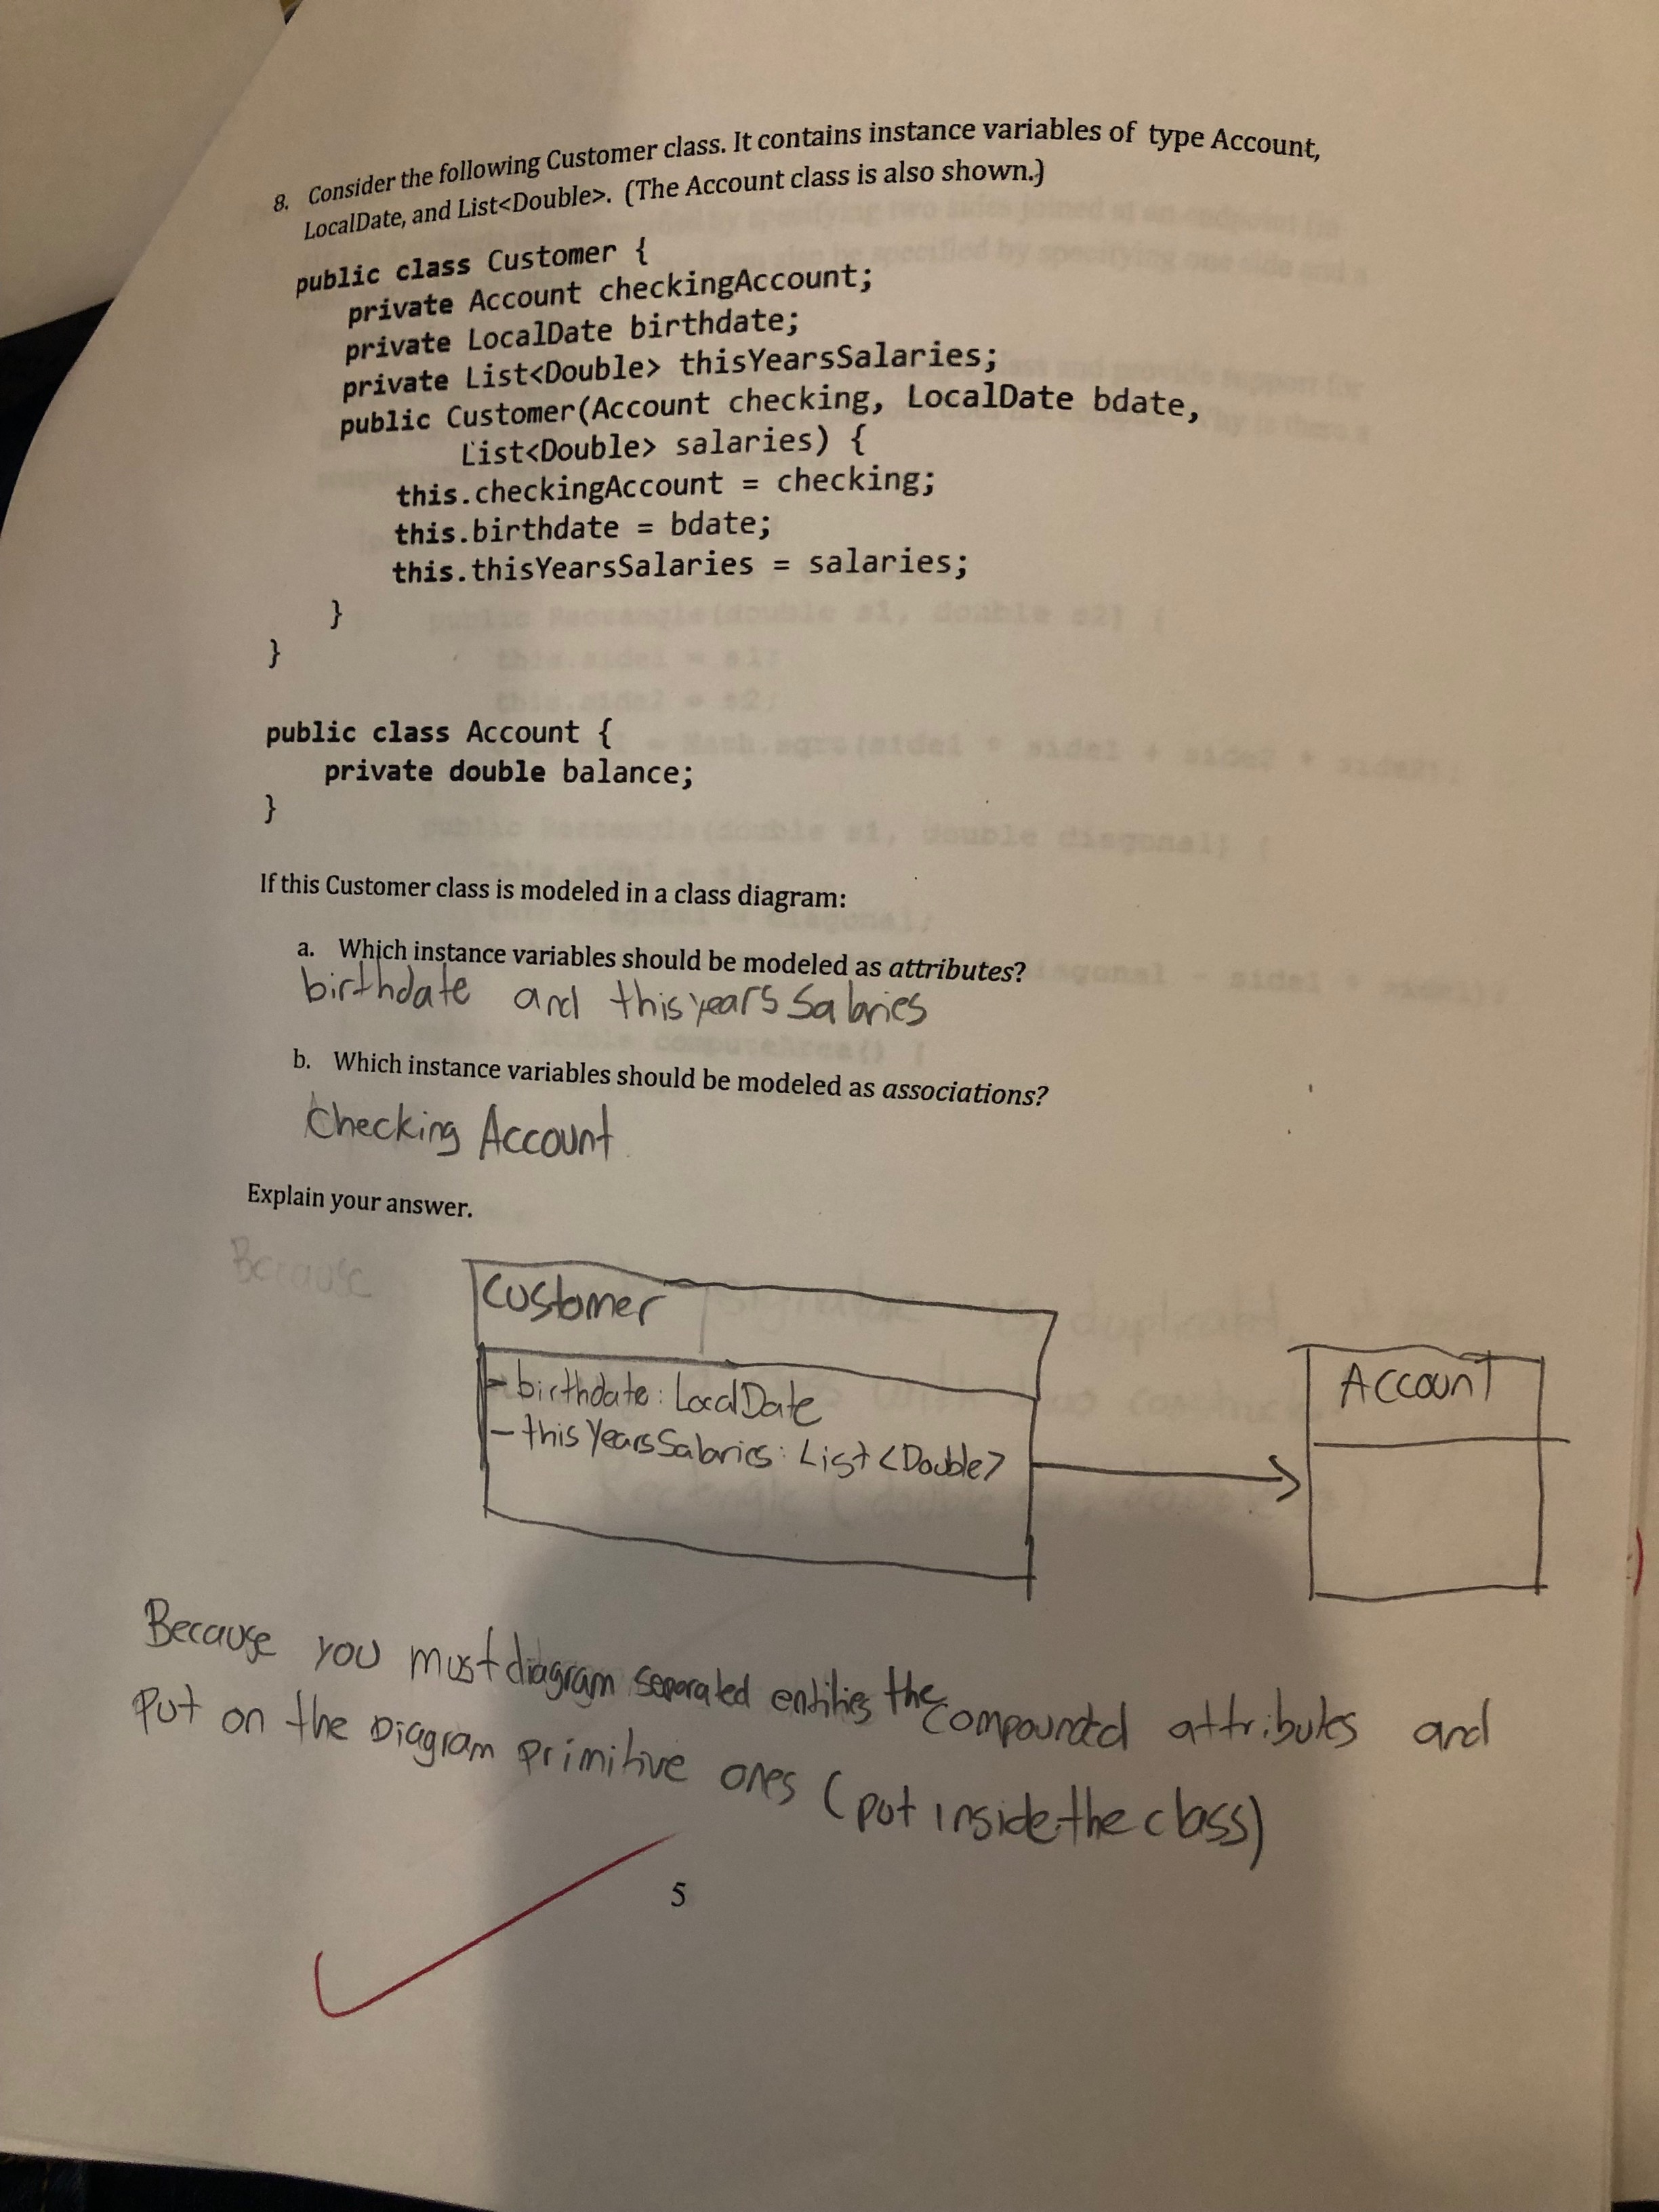 8. Consider the following Customer class. It contains instance variables of type Account,
LocalDate, and List<Double>. (The Account class is also shown.)
public class Customer {
private Account checkingAccount;
private LocalDate birthdate;
private List<Double> thisYearsSalaries;
public Customer(Account checking, LocalDate bdate,
List<Double> salaries) {
this.checkingAccount = checking;
this.birthdate = bdate;
this.thisYearsSalaries = salaries;
}
}
public class Account {
private double balance;
}
If this Customer class is modeled in a class diagram:
a. Which instance variables should be modeled as attributes?
birthdate and thisyearsSalaries
b. Which instance variables should be modeled as associations?
Checking Account
Explain your answer.
Because
Customer
- birthdate: LocalDate
- thisYearsSalaries: List<Double>
Account
Because you must diagram separated entities the compounded attributes and
put on the Diagram primitive ones (put inside the class)
5